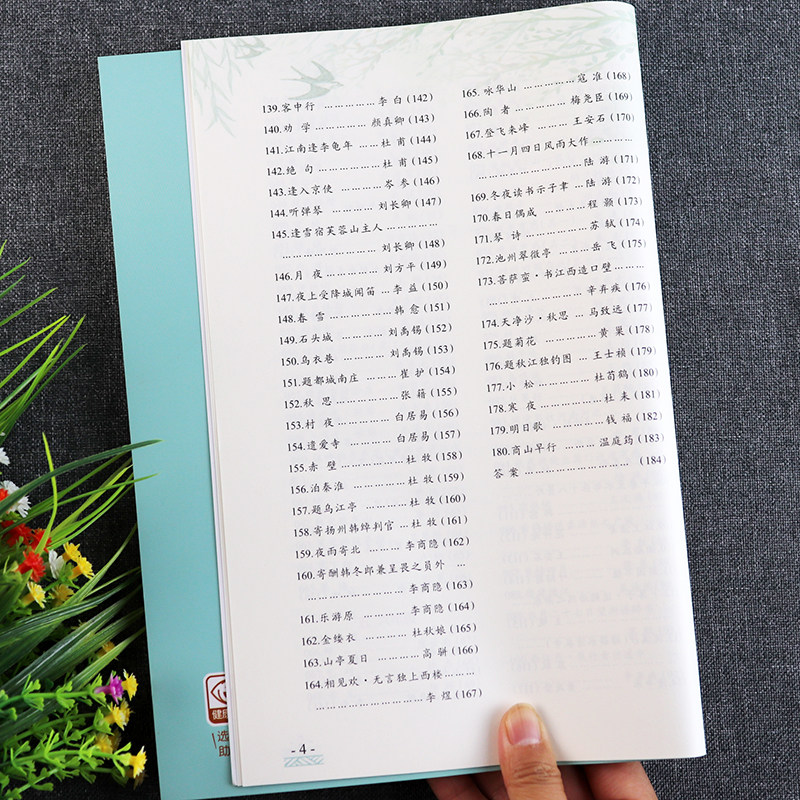 139.客中行 …………… 李 白 (142)
140.劝 学 …………… 颜真卿 (143)
141.江南逢李龟年 …… 杜 甫 (144)
142.绝 句 …………… 杜 甫 (145)
143.逢入京使 ………… 岑 参 (146)
144.听弹琴 ………… 刘长卿 (147)
145.逢雪宿芙蓉山主人 ……………
…………………… 刘长卿 (148)
146.月 夜 ………… 刘方平 (149)
147.夜上受降城闻笛 … 李 益 (150)
148.春 雪 …………… 韩 愈 (151)
149.石头城 ………… 刘禹锡 (152)
150.乌衣巷 ………… 刘禹锡 (153)
151.题都城南庄 ……… 崔 护 (154)
152.秋 思 …………… 张 籍 (155)
153.村 夜 ………… 白居易 (156)
154.遗爱寺 ………… 白居易 (157)
155.赤 壁 …………… 杜 牧 (158)
156.泊秦淮 …………… 杜 牧 (159)
157.题乌江亭 ………… 杜 牧 (160)
158.寄扬州韩绰判官 … 杜 牧 (161)
159.夜雨寄北 ……… 李商隐 (162)
160.寄酬韩冬郎兼呈畏之员外 …
…………………… 李商隐 (163)
161.乐游原 ………… 李商隐 (164)
162.金缕衣 ………… 杜秋娘 (165)
163.山亭夏日 ………… 高 骈 (166)
164.相见欢·无言独上西楼………
…………………… 李 煜 (167)
165.咏华山 …………… 寇 准 (168)
166.陶 者 ………… 梅尧臣 (169)
167.登飞来峰 ……… 王安石 (170)
168.十一月四日风雨大作 …………
…………………… 陆 游 (171)
169.冬夜读书示子聿 … 陆 游 (172)
170.春日偶成 ………… 程 颢 (173)
171.琴 诗 …………… 苏 轼 (174)
172.池州翠微亭 ……… 岳 飞 (175)
173.菩萨蛮·书江西造口壁 ………
…………………… 辛弃疾 (176)
174.天净沙·秋思 … 马致远 (177)
175.题菊花 …………… 黄 巢 (178)
176.题秋江独钓图 … 王士祯 (179)
177.小 松 ………… 杜荀鹤 (180)
178.寒 夜 …………… 杜 耒 (181)
179.明日歌 …………… 钱 福 (182)
180.商山早行 ……… 温庭筠 (183)
答 案 …………………… (184)
- 4 -